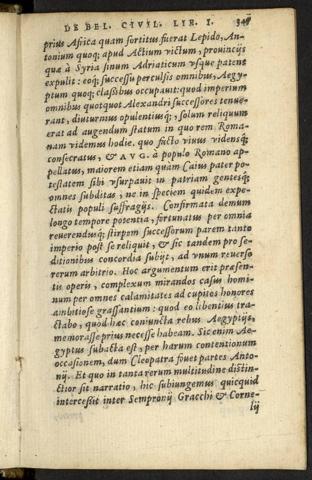 DE BEL. CIVIL. LIB. I.
prius Africa quam sortitus fuerat Lepido, An-
tonium quoq; apud Actium victum, prouincijs
quæ à Syria sinum Adriaticum vsque patent
expulit: eoq; successu perculsis omnibus, Aegy-
ptum quoq; classibus occupant: quod imperium
omnibus quotquot Alexandri successores tenue-
rant, diuturnius opulentiusq;, solum reliquum
erat ad augendum statum in quo rem Roma-
nam videmus hodie. quo facto viuus vidensq;
consecratus, & AVG. à populo Romano ap-
pellatus, maiorem etiam quàm Caius pater po-
testatem sibi vsurpauit in patriam gentesq;
omnes subditas, ne in speciem quidem expe-
ctatis populi suffragijs. Confirmata demum
longo tempore potentia, fortunatus per omnia
reuerendusq; stirpem successorum parem tanto
imperio post se reliquit, & sic tandem pro se-
ditionibus concordia subijt, ad vnum reuerso
rerum arbitrio. Hoc argumentum erit præsen-
tis operis, complexum mirandos casus homi-
num per omnes calamitates ad cupitos honores
ambitiose grassantium: quod eo libentius tra-
ctabo, quod hæc coniuncta rebus Aegyptijs,
memorasse prius necesse habeam. Sic enim Ae-
gyptus subacta est, per harum contentionum
occasionem, dum Cleopatra fouet partes Anto-
nij. Et quo in tanta rerum multitudine distin-
ctior sit narratio, hic subiungemus quicquid
intercessit inter Sempronij Gracchi & Corne-
lij